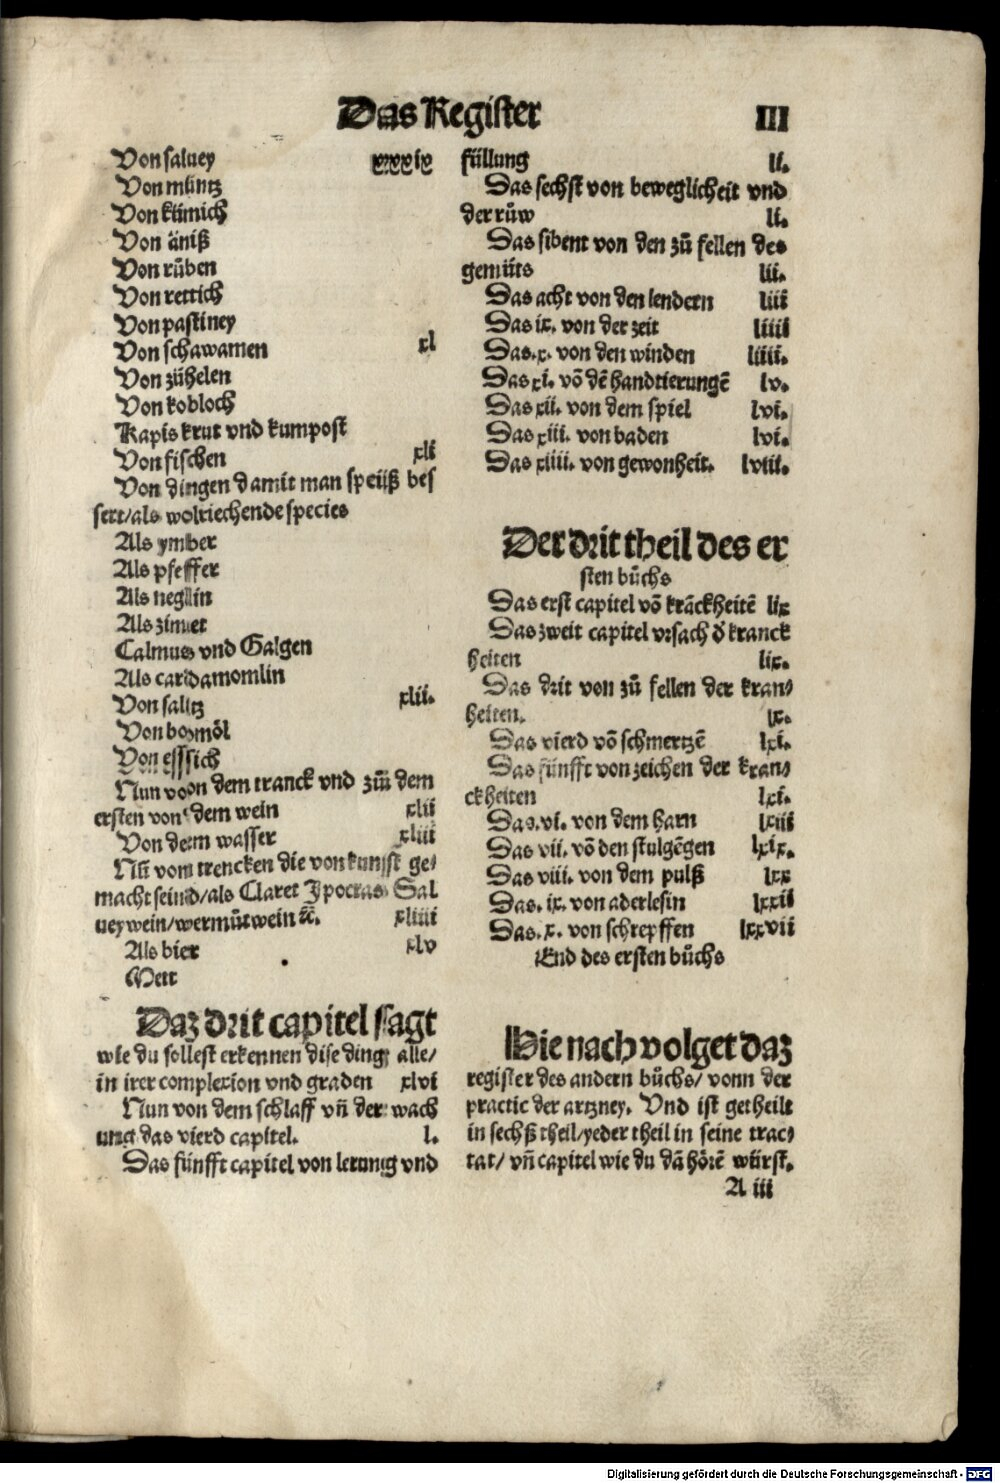 Das Register III
Von saluey xxxxix
Von müntz
Von kümich
Von äniß
Von rüben
Von rettich
Von pastiney
Von schawamen xl
Von zübelen
Von kobloch
Kapis krut vnd kumpost
Von fischen xli
Von dingen damit man speiß bes
sert/als wolriechende species
Als ymber
Als pfeffer
Als neglin
Als zimet
Calmus vnd Galgen
Als cardamomlin
Von saltz xlii.
Von bomöl
Von essich
Nun von dem tranck vnd zům dem
ersten von dem wein xlii
Von dem wasser xliii
Nũ vom trencken die von kunst ge/
macht seind/als Claret Ipocras Sal
ueywein/wermůtwein ꝛc̃. xliiii
Als bier xlv
Mett
Daz drit capitel sagt
wie du sollest erkennen dise ding alle/
in irer complexion vnd graden xlvi
Nun von dem schlaff vñ der wach
ung das vierd capitel. l.
Das fünfft capitel von lerung vnd
füllung li.
Das sechst von beweglicheit vnd
der růw li.
Das sibent von den zů fellen des
gemüts lii.
Das acht von den lendern liii
Das ix. von der zeit liiii
Das.x. von den winden liiii.
Das xi. võ dẽ handtierungẽ lv.
Das xii. von dem spiel lvi.
Das xiii. von baden lvi.
Das xiiii. von gewonheit. lviii.
Der drit theil des er
sten bůchs
Das erst capitel võ krãckheitẽ lix
Das zweit capitel vrsach d̕ kranck
heiten lix.
Das drit von zů fellen der kran/
heiten. lx.
Das vierd võ schmertzẽ lxi.
Das fünfft von zeichen der kran/
ckheiten lxi.
Das.vi. von dem harn lxiii
Das vii. võ den stulgẽgen lxix.
Das viii. von dem pulß lxx
Das. ix. von aderlesin lxxii
Das.x. von schrepffen lxxvii
End des ersten bůchs
Hie nach volget daz
register des andern bůchs/ vonn der
practic der artzney. Vnd ist getheilt
in sechß theil/yeder theil in seine trac/
tat/ vñ capitel wie du dã hörẽ würst.
A iii
Digitalisierung gefördert durch die Deutsche Forschungsgemeinschaft - DFG